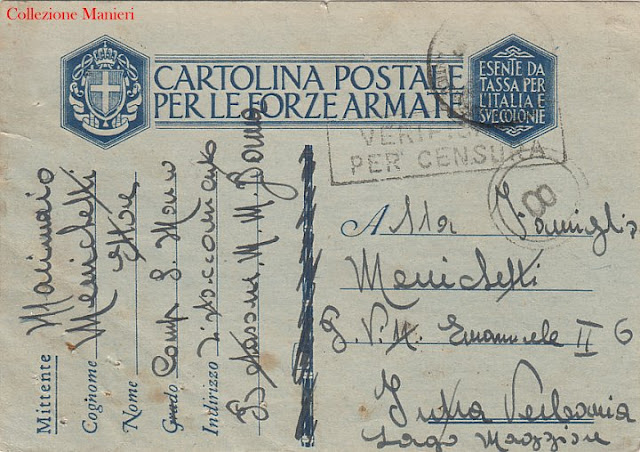 Collezione Manieri
CARTOLINA POSTALE
PER LE FORZE ARMATE
ESENTE DA
TASSA PER
L'ITALIA E
SUE COLONIE
VERIFICA
PER CENSURA
8
Mittente Marinaio
Cognome Menichetti
Nome Ettore
Grado Comp. S. Marco
Indirizzo Distaccamento
M. M.
Alla Famiglia
Menichetti
P. V. E. Emanuele II 6
Intra Verbania
Lago Maggiore